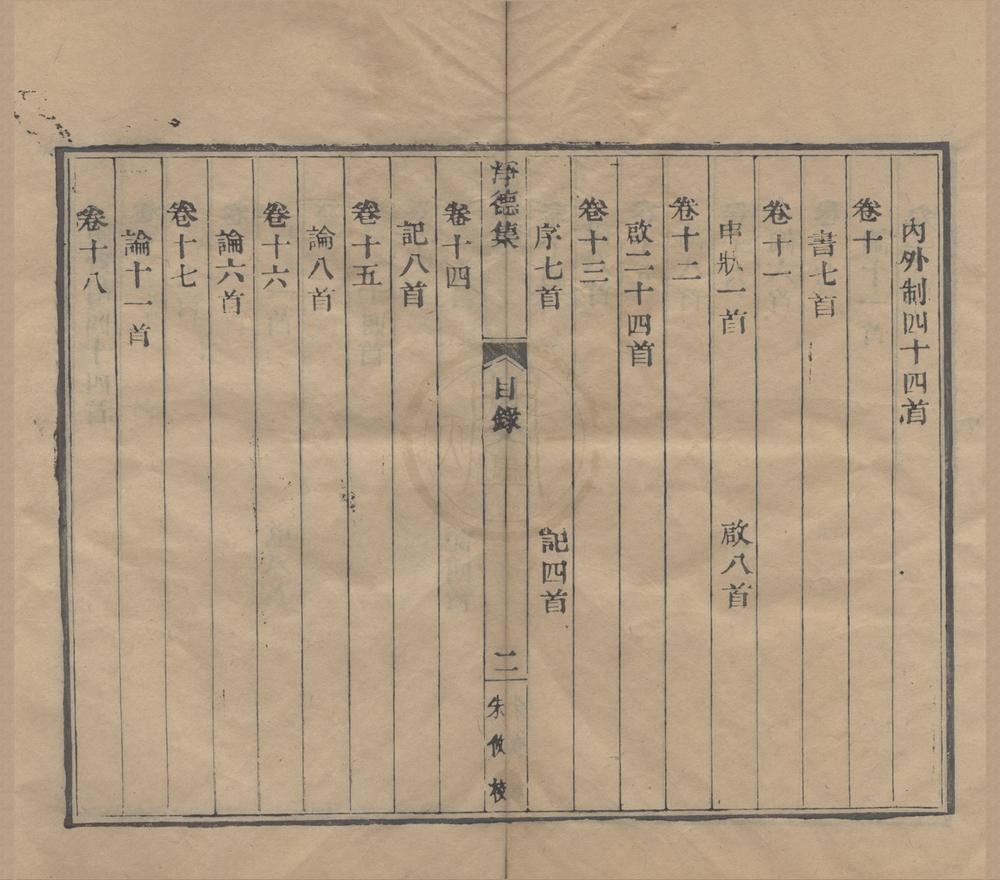 內外制四十四首
卷十
書七首
卷十一
申狀一首　啟八首
卷十二
啟二十四首
卷十三
序七首　記四首
淨德集　目錄　二　朱攸校
卷十四
記八首
卷十五
論八首
卷十六
論六首
卷十七
論十一首
卷十八